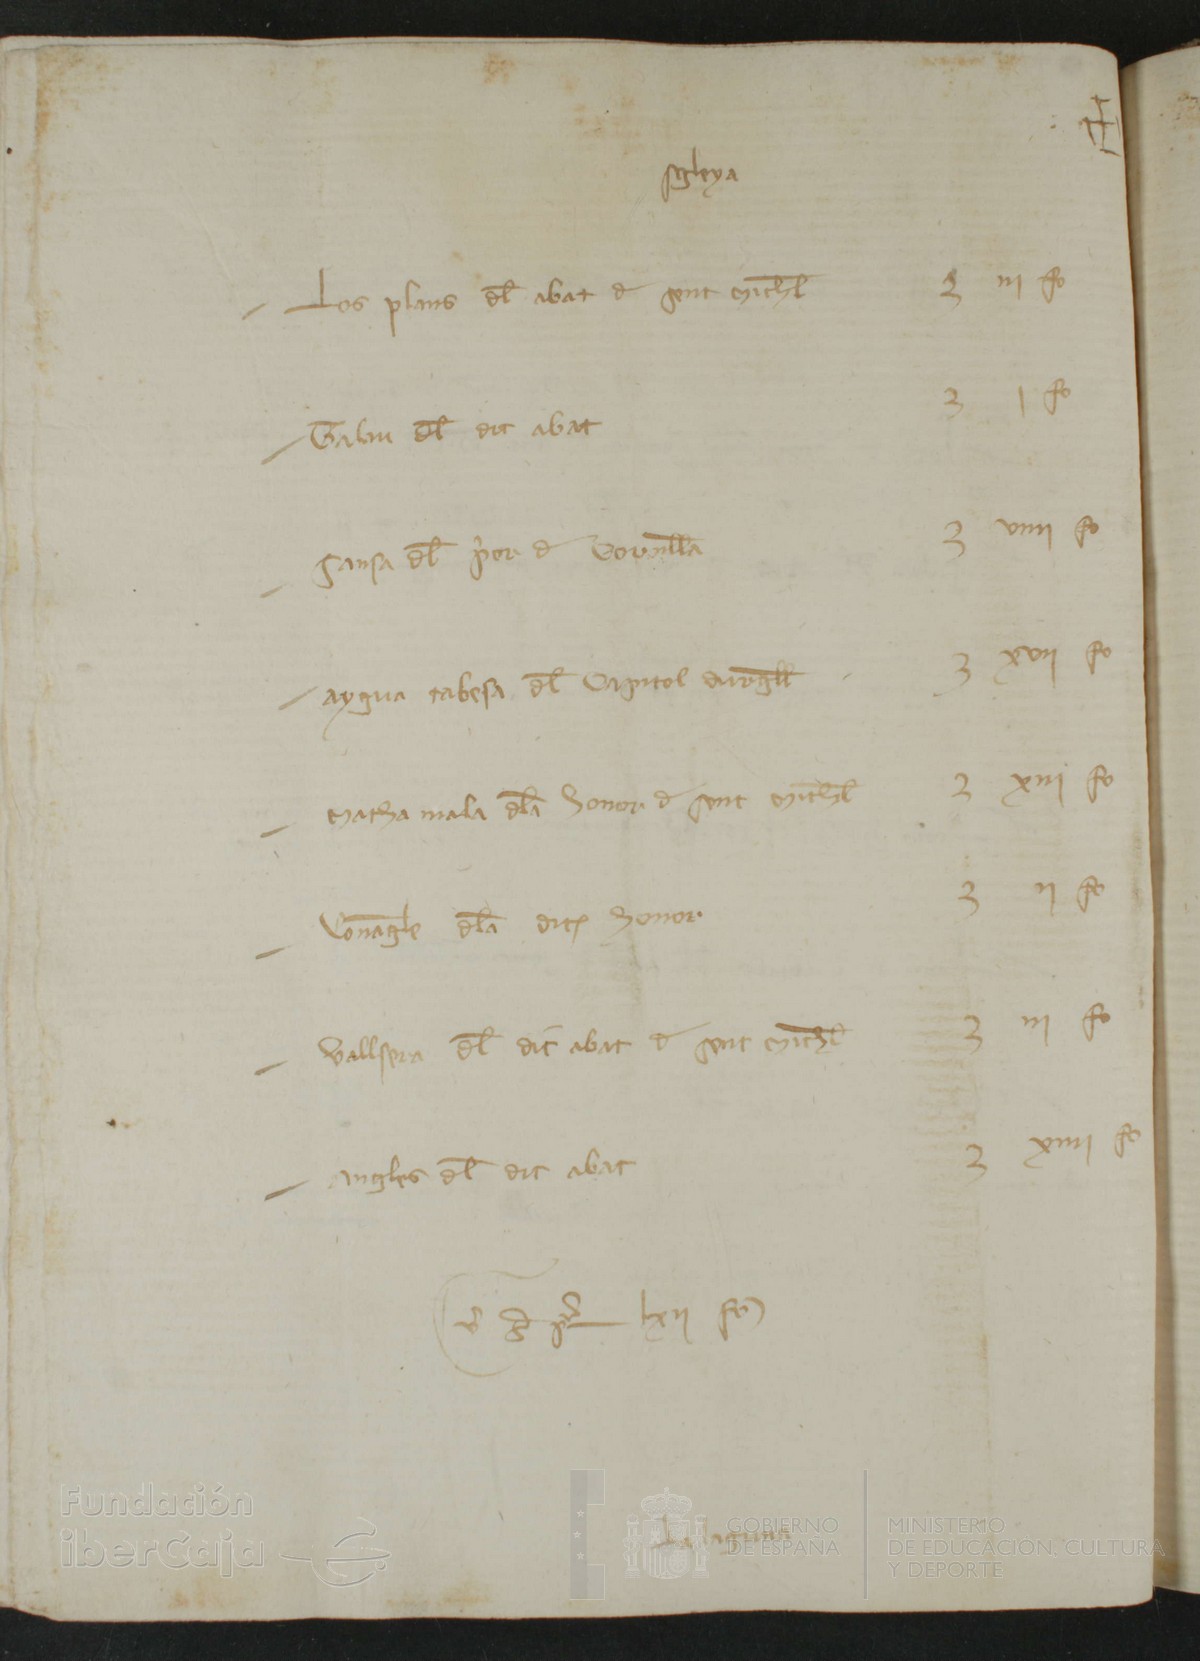 sgleya
Los plans del abat d sent Michel iii fo
Talau del dit abat i fo
Sansa del prior d Cornella viiii fo
Aygua tabesa del Capitol durgell xvii fo
Matha mala dla honor d sent Michel xiii fo
dla dita honor ii fo
Vallsera del dit abat d sent Michel iii fo
Angles del dit abat xiiii fo
lxii fo
Fundación
iberCaja
GOBIERNO
DE ESPAÑA
MINISTERIO
DE EDUCACIÓN, CULTURA
Y DEPORTE